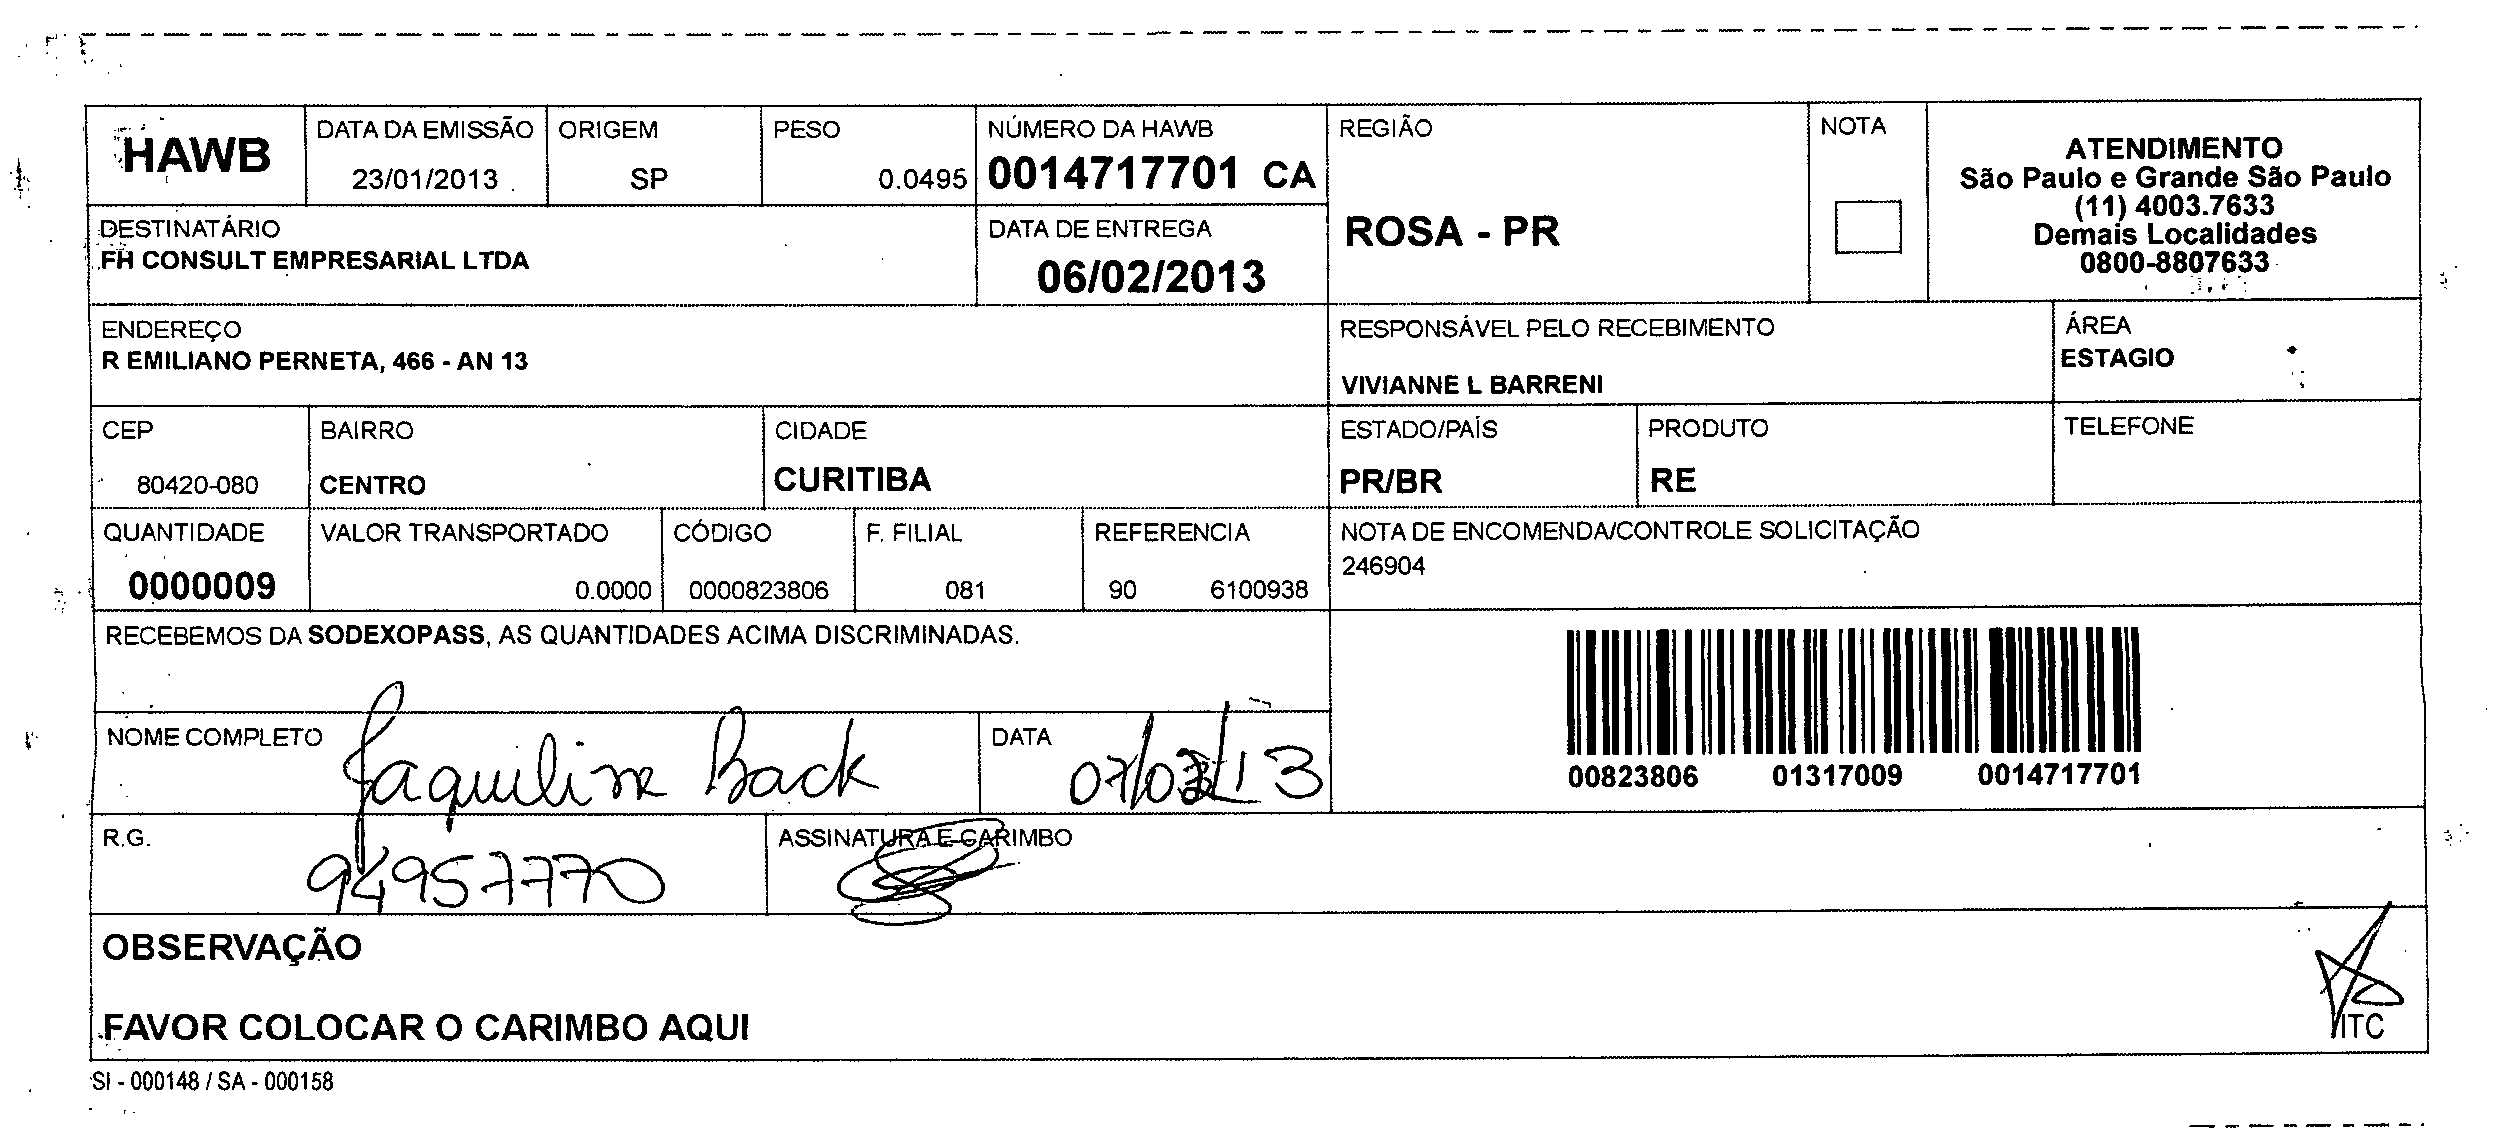 HAWB
DATA DA EMISSÃO
23/01/2013
ORIGEM
SP
PESO
0.0495
NÚMERO DA HAWB
0014717701 CA
REGIÃO
ROSA - PR
NOTA
ATENDIMENTO
São Paulo e Grande São Paulo
(11) 4003.7633
Demais Localidades
0800-8807633
DESTINATÁRIO
FH CONSULT EMPRESARIAL LTDA
DATA DE ENTREGA
06/02/2013
ENDEREÇO
R EMILIANO PERNETA, 466 - AN 13
RESPONSÁVEL PELO RECEBIMENTO
VIVIANNE L BARRENI
ÁREA
ESTAGIO
CEP
80420-080
BAIRRO
CENTRO
CIDADE
CURITIBA
ESTADO/PAÍS
PR/BR
PRODUTO
RE
TELEFONE
QUANTIDADE
0000009
VALOR TRANSPORTADO
0.0000
CÓDIGO
0000823806
F. FILIAL
081
REFERENCIA
90 6100938
NOTA DE ENCOMENDA/CONTROLE SOLICITAÇÃO
246904
RECEBEMOS DA SODEXOPASS, AS QUANTIDADES ACIMA DISCRIMINADAS.
00823806 01317009 0014717701
NOME COMPLETO
Jaquiline Back
DATA
R.G.
94957770
ASSINATURA E CARIMBO
OBSERVAÇÃO
FAVOR COLOCAR O CARIMBO AQUI
ITC
SI - 000148 / SA - 000158